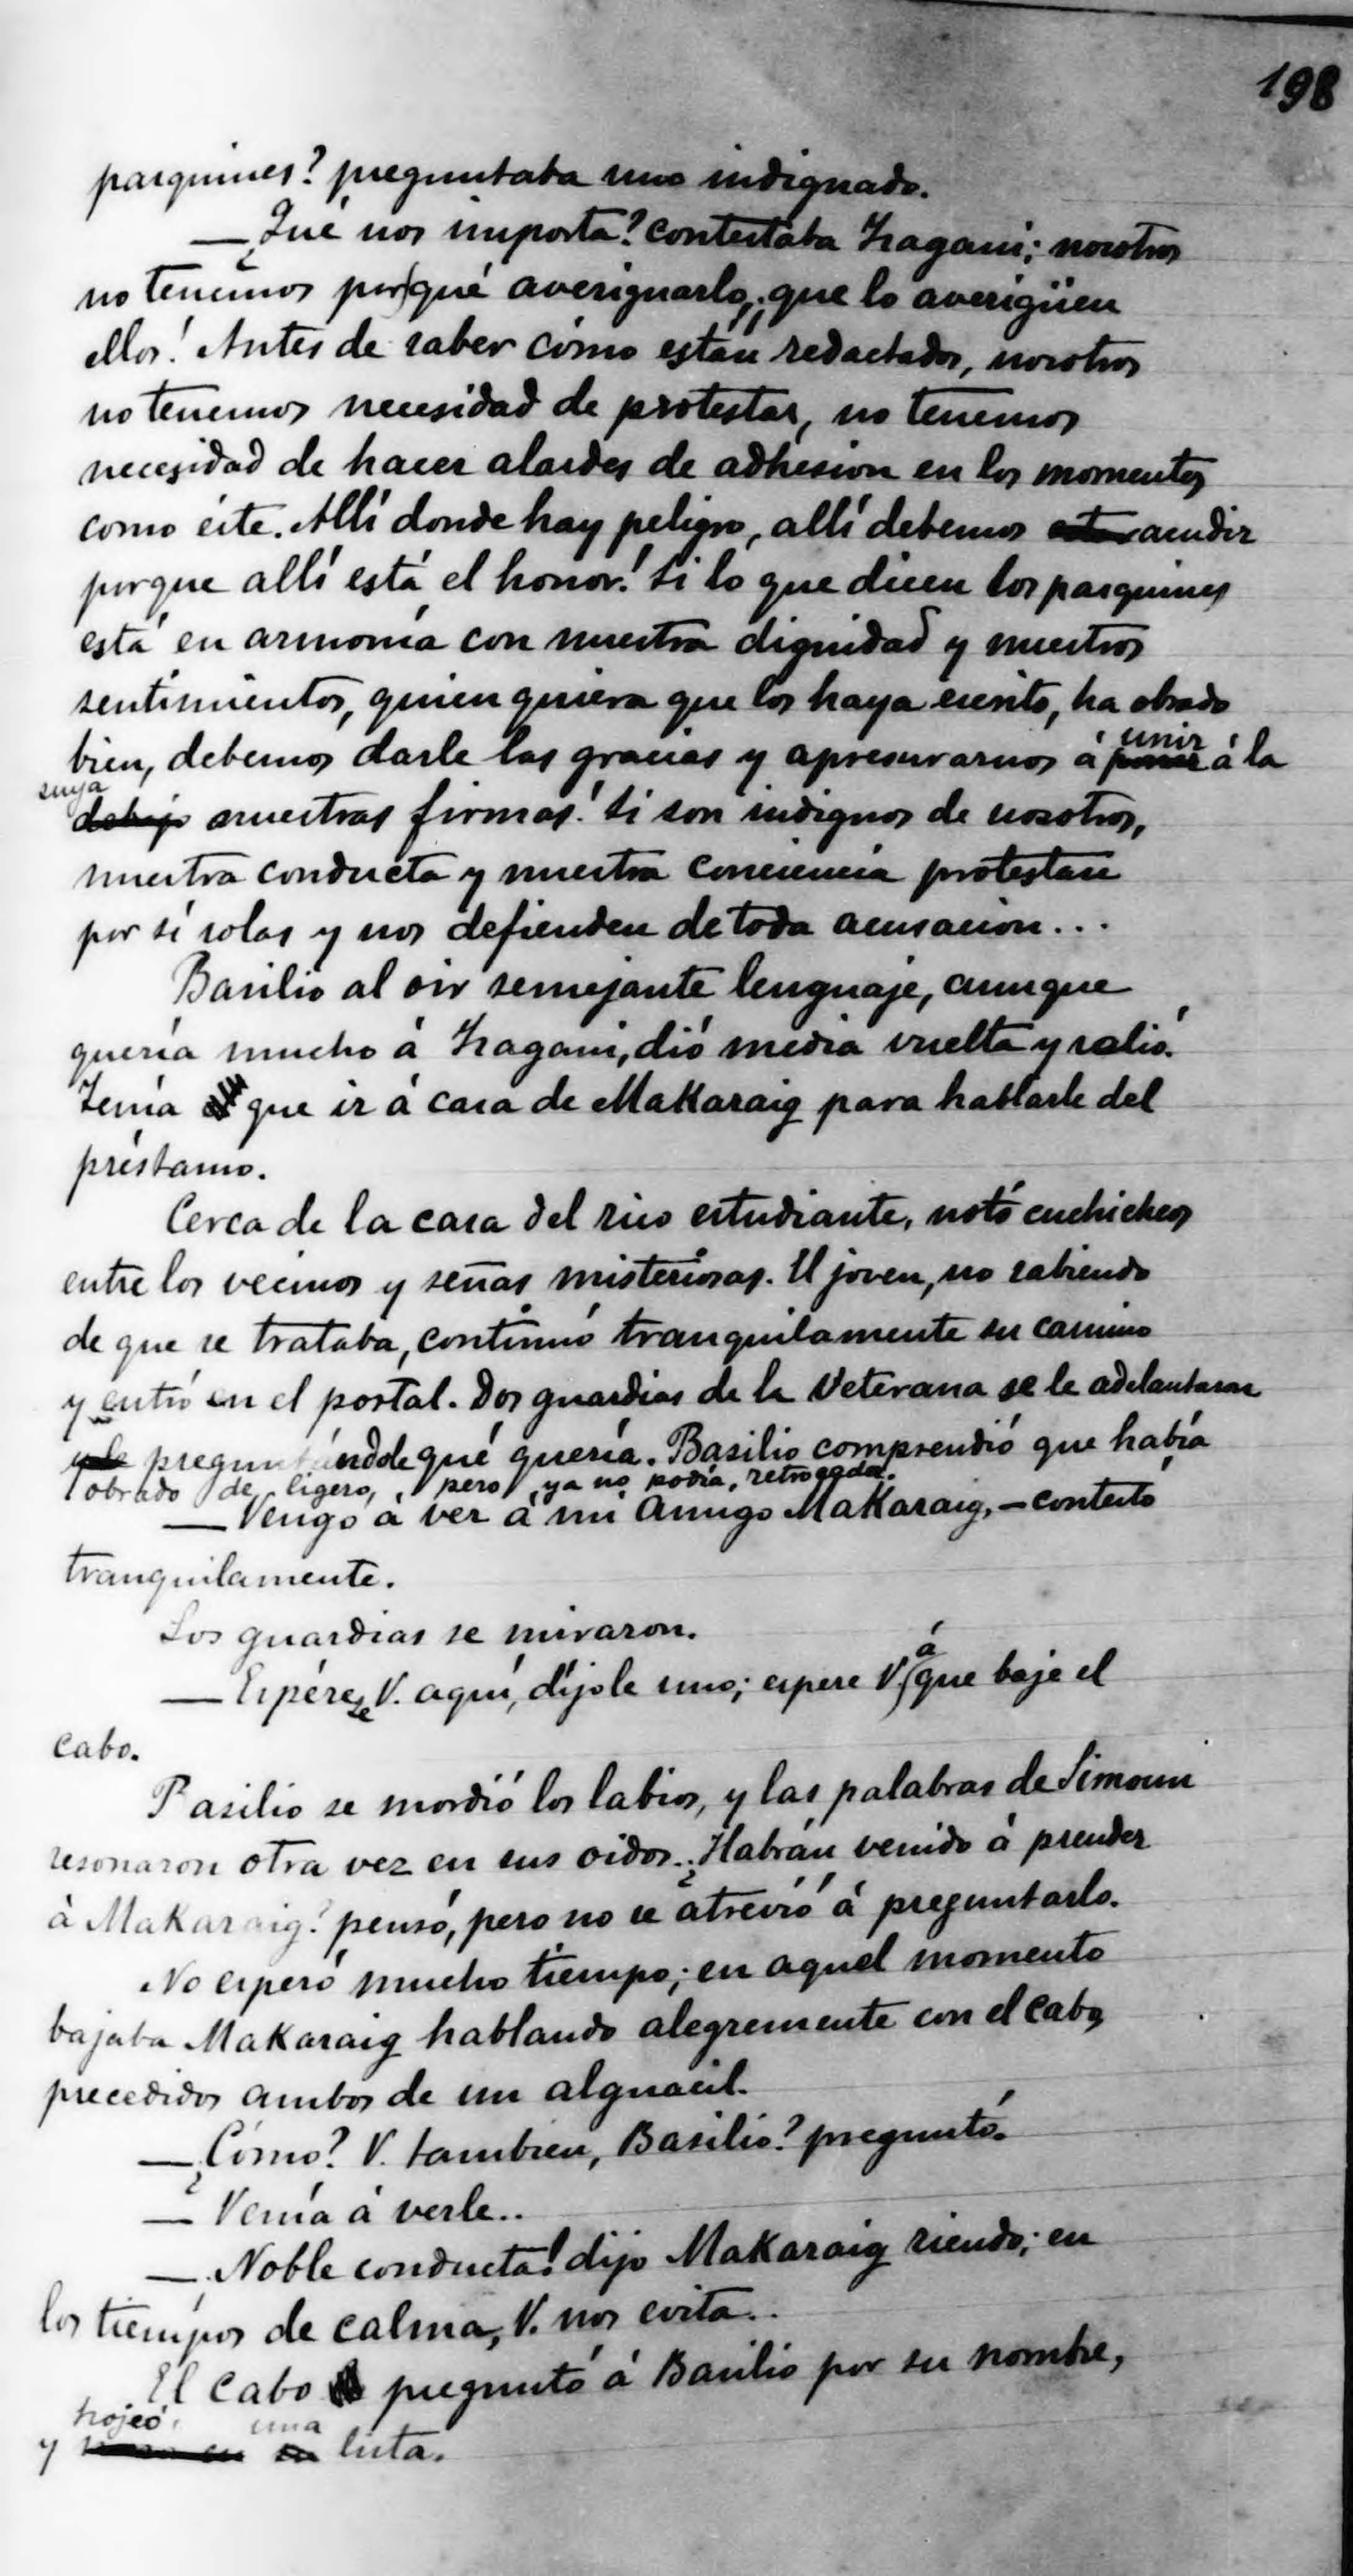 198
pasquines? preguntaba uno indignado.
— ¿Qué nos importa? contestaba Isagani; nosotros
no tenemos por qué averiguarlo, ¡que lo averigüen
ellos! Antes de saber cómo están redactados, nosotros
no tenemos necesidad de protestar, no tenemos
necesidad de hacer alardes de adhesion en los momentos
como éste. Allí donde hay peligro, allí debemos acudir
porque allí está el honor! Si lo que dicen los pasquines
está en armonía con nuestra dignidad y nuestros
sentimientos, quien quiera que los haya escrito, ha obrado
bien, debemos darle las gracias y apresurarnos á unir á la
suya nuestras firmas! Si son indignos de nosotros,
nuestra conducta y nuestra conciencia protestan
por sí solas y nos defienden de toda acusacion...
Basilio al oir semejante lenguaje, aunque
quería mucho á Isagani, dió media vuelta y salió.
Tenía que ir á casa de Makaraig para hablarle del
préstamo.
Cerca de la casa del rico estudiante, notó cuchicheos
entre los vecinos y señas misteriosas. El joven, no sabiendo
de que se trataba, continuó tranquilamente su camino
y entró en el portal. Dos guardias de la Veterana se le adelantaron
preguntándole qué quería. Basilio comprendió que había
obrado de ligero, pero ya no podía retroceder.
— Vengo á ver á mi amigo Makaraig, — contestó
tranquilamente.
Los guardias se miraron.
— Espérese V. aquí, díjole uno; espere V. á que baje el
cabo.
Basilio se mordió los labios, y las palabras de Simoun
resonaron otra vez en sus oidos.. ¿Habrán venido á prender
á Makaraig? pensó, pero no se atrevió á preguntarlo.
No esperó mucho tiempo; en aquel momento
bajaba Makaraig hablando alegremente con el cabo,
precedidos ambos de un alguacil.
— ¿Cómo? V. tambien, Basilio? preguntó.
— Venía á verle..
— ¡Noble conducta! dijo Makaraig riendo; en
los tiempos de calma, V. nos evita..
El cabo preguntó á Basilio por su nombre,
y hojeó una lista.